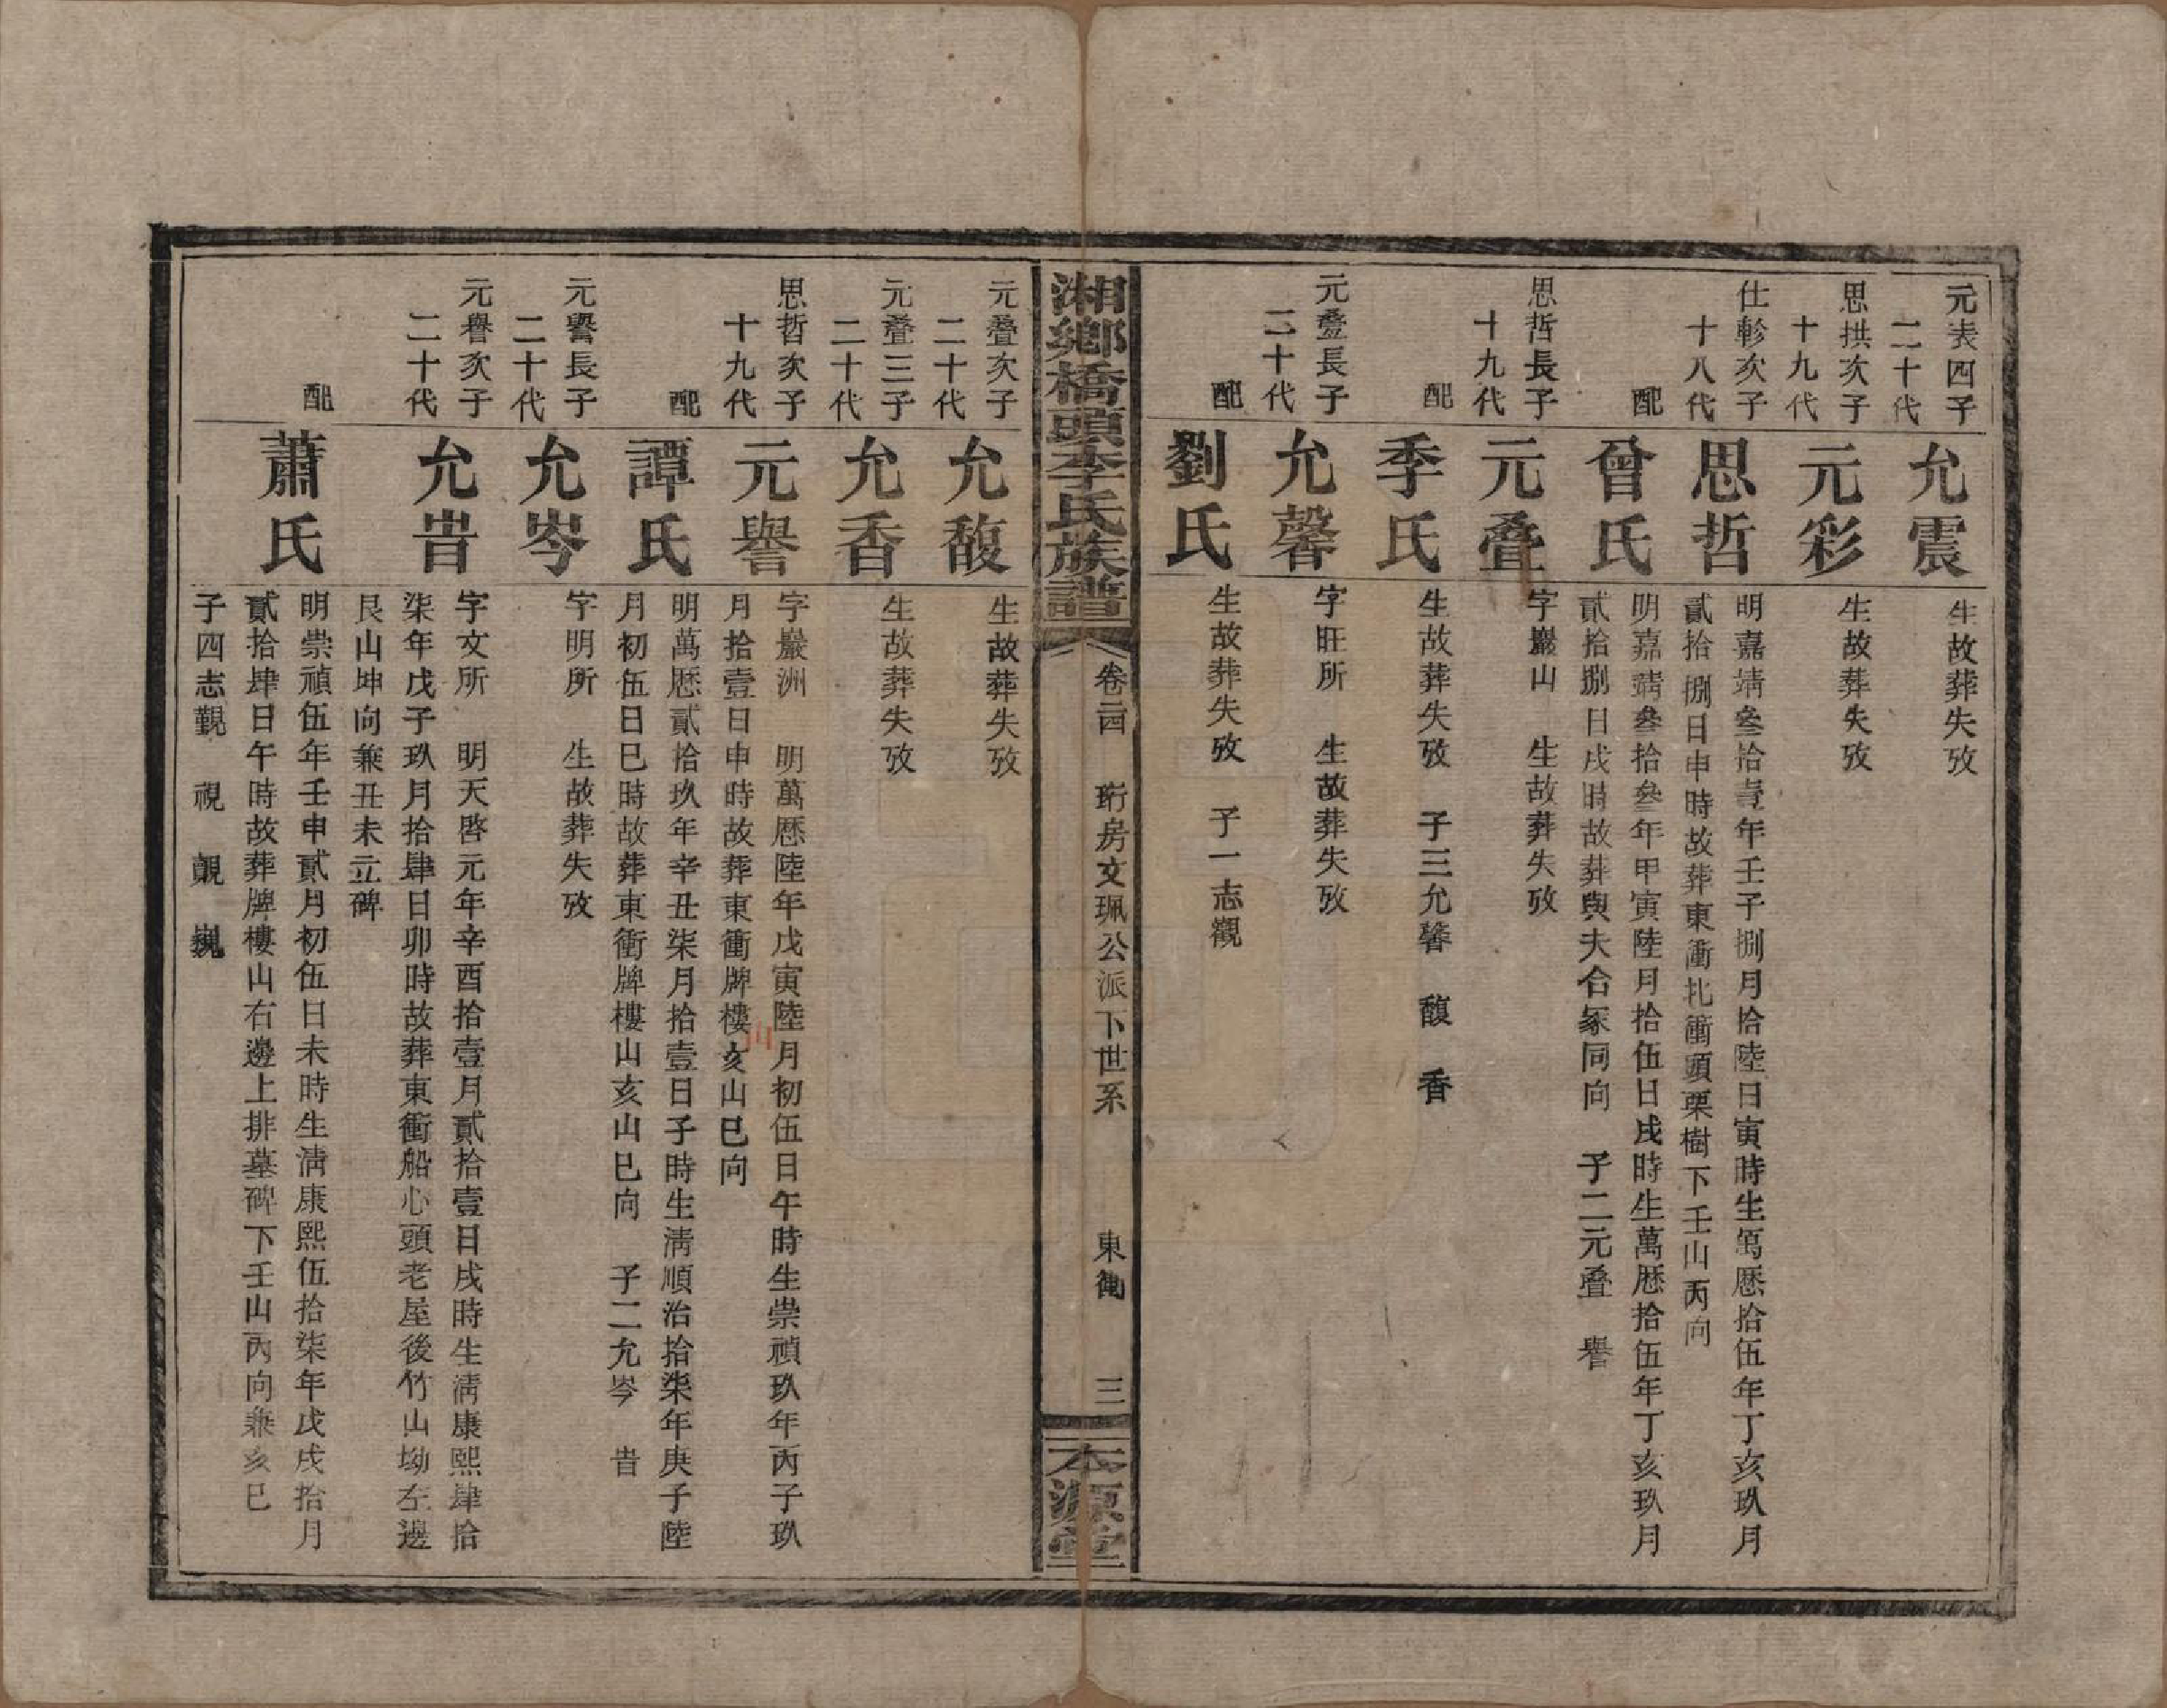 元表四子
二十代
允震
生故葬失攷
思拱次子
十九代
元彩
生故葬失攷
仕軫次子
十八代
思哲
明嘉靖叁拾壹年壬子捌月拾陸日寅時生萬厯拾伍年丁亥玖月
貳拾捌日申時故葬東衝北衝頭栗樹下壬山丙向
配
曾氏
明嘉靖叁拾叁年甲寅陸月拾伍日戌時生萬厯拾伍年丁亥玖月
貳拾捌日戌時故葬與夫合冢同向 子二元疊 譽
思哲長子
十九代
元疊
字巖山 生故葬失攷
配
季氏
生故葬失攷 子三允馨 馥 香
元疊長子
二十代
允馨
字旺所 生故葬失攷
配
劉氏
生故葬失攷 子一志觀
湘鄉橋頭李氏族譜
卷二四 珩房文珮公派下世系 東衝 三
本源堂
元疊次子
二十代
允馥
生故葬失攷
元疊三子
二十代
允香
生故葬失攷
思哲次子
十九代
元譽
字巖洲 明萬厯陸年戊寅陸月初伍日午時生崇禎玖年丙子玖
月拾壹日申時故葬東衝牌樓山亥山巳向
配
譚氏
明萬厯貳拾玖年辛丑柒月拾壹日子時生淸順治拾柒年庚子陸
月初伍日巳時故葬東衝牌樓山亥山巳向 子二允岑 岩
元譽長子
二十代
允岑
字明所 生故葬失攷
元譽次子
二十代
允岩
字文所 明天啓元年辛酉拾壹月貳拾壹日戌時生淸康熙肆拾
柒年戊子玖月拾肆日卯時故葬東衝船心頭老屋後竹山坳左邊
艮山坤向兼丑未立碑
配
蕭氏
明崇禎伍年壬申貳月初伍日未時生淸康熙伍拾柒年戊戌拾月
貳拾肆日午時故葬牌樓山右邊上排墓碑下壬山丙向兼亥巳
子四志觐 視 覿 巍